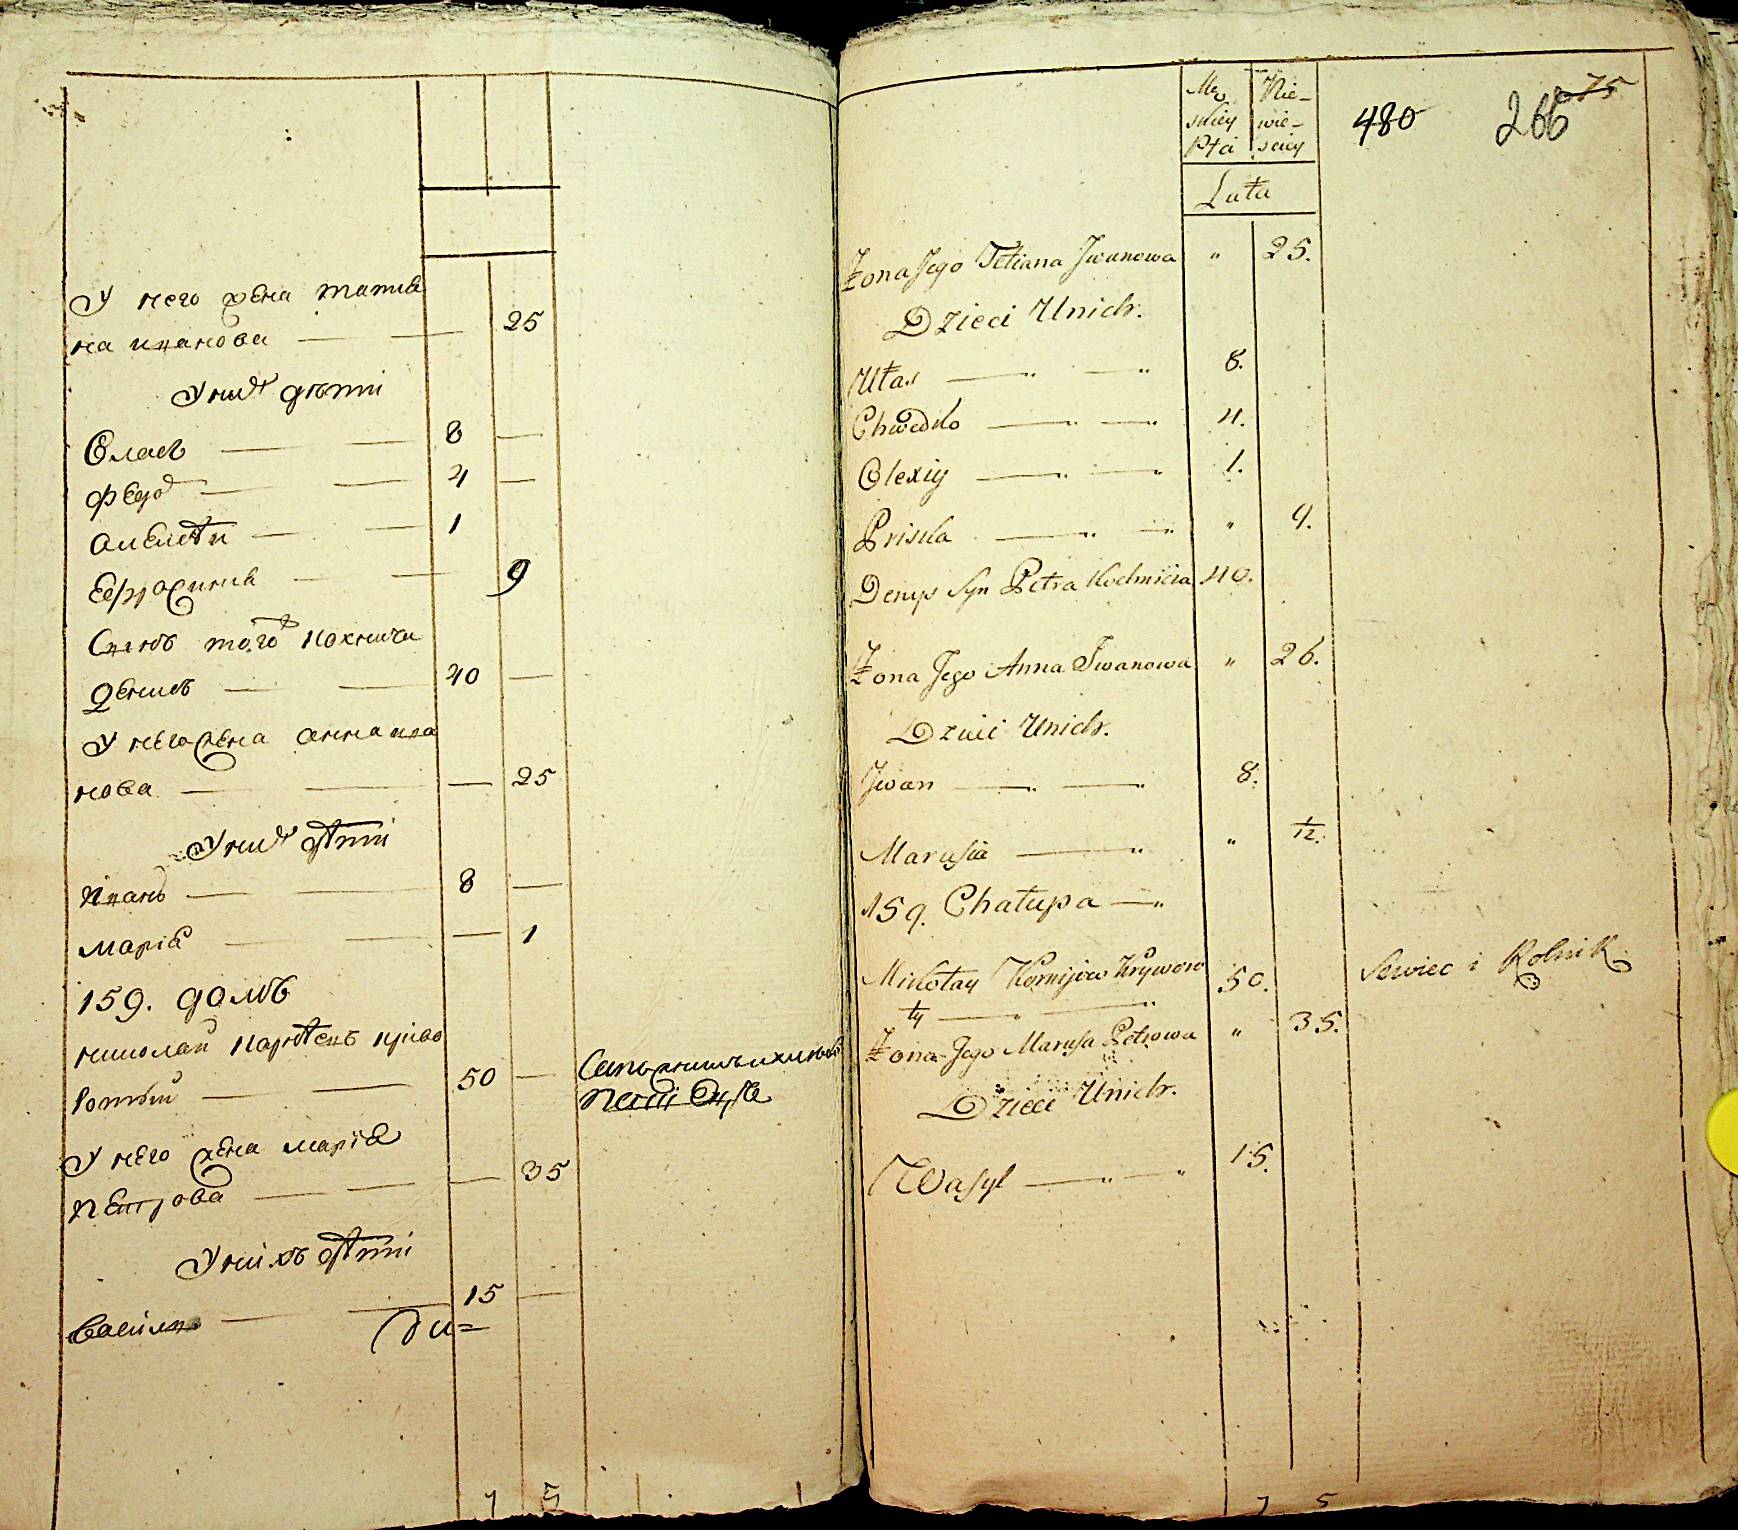 У него жена татия
на иванова — — 25
У них дѣти
Влась — — 8 —
Федор — — 4 —
Алексѣи — — 1
Ефросиния — — 9
Синъ того
Денись — — 40 —
У него жена анна ива
нова — — — 25
У них дѣти
Иванъ — — 8 —
Марія — — — 1
159. домъ
николай Корнѣевъ криво
ротый — — 50 —
У него жена марія
Петрова — — — 35
У нихъ дѣти
Василь — — 15 —
7 5
Męskiey Płci
Niewiesciey
480 266 75
Lata
Żona Jego Tetiana Iwanowa " 25.
Dzieci Unich.
Ułas — " — " 8.
Chwedko — " — " 4.
Olexiy — " — " 1.
Priska — " — " " 9.
Denys Syn Petra 40.
Żona Jego Anna Iwanowa " 26.
Dzieci Unich.
Iwan — " — " 8.
Marusia — " " 1/12.
159. Chałupa — "
Mikołay Kornijew Kryworo 50. Szwiec i Rolnik
ty — " — "
Żona Jego Marusa Petrowa " 35.
Dzieci Unich.
Wasyl — " — " 15.
7 5